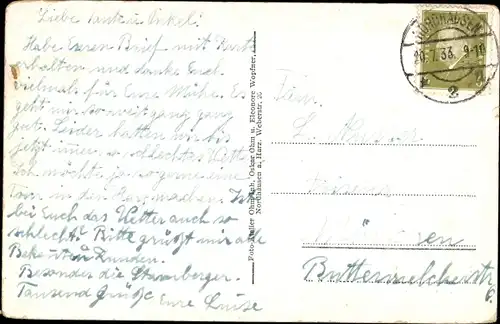 Liebe Tante u. Onkel!
Habe Euren Brief mit Karte
erhalten und danke Euch
vielmals für Eure Mühe. Es
geht mir soweit ganz
gut. Leider hatten wir bis
jetzt immer so schlechtes Wett.
Ich möchte ja so gerne eine
Tour in den Harz machen. Ist
bei Euch das Wetter auch so
schlecht? Bitte grüßt mir alle
Bekannten
Besonders die Starnberger.
Tausend Grüße Eure Luise
Foto-Atelier Oskar Ohm u. Eleonore Wopfner,
Nordhausen a. Harz, Weberstr.
NORDHAUSEN
26.7.33. 9-10
2
L.
Buttermelcherstr
6.